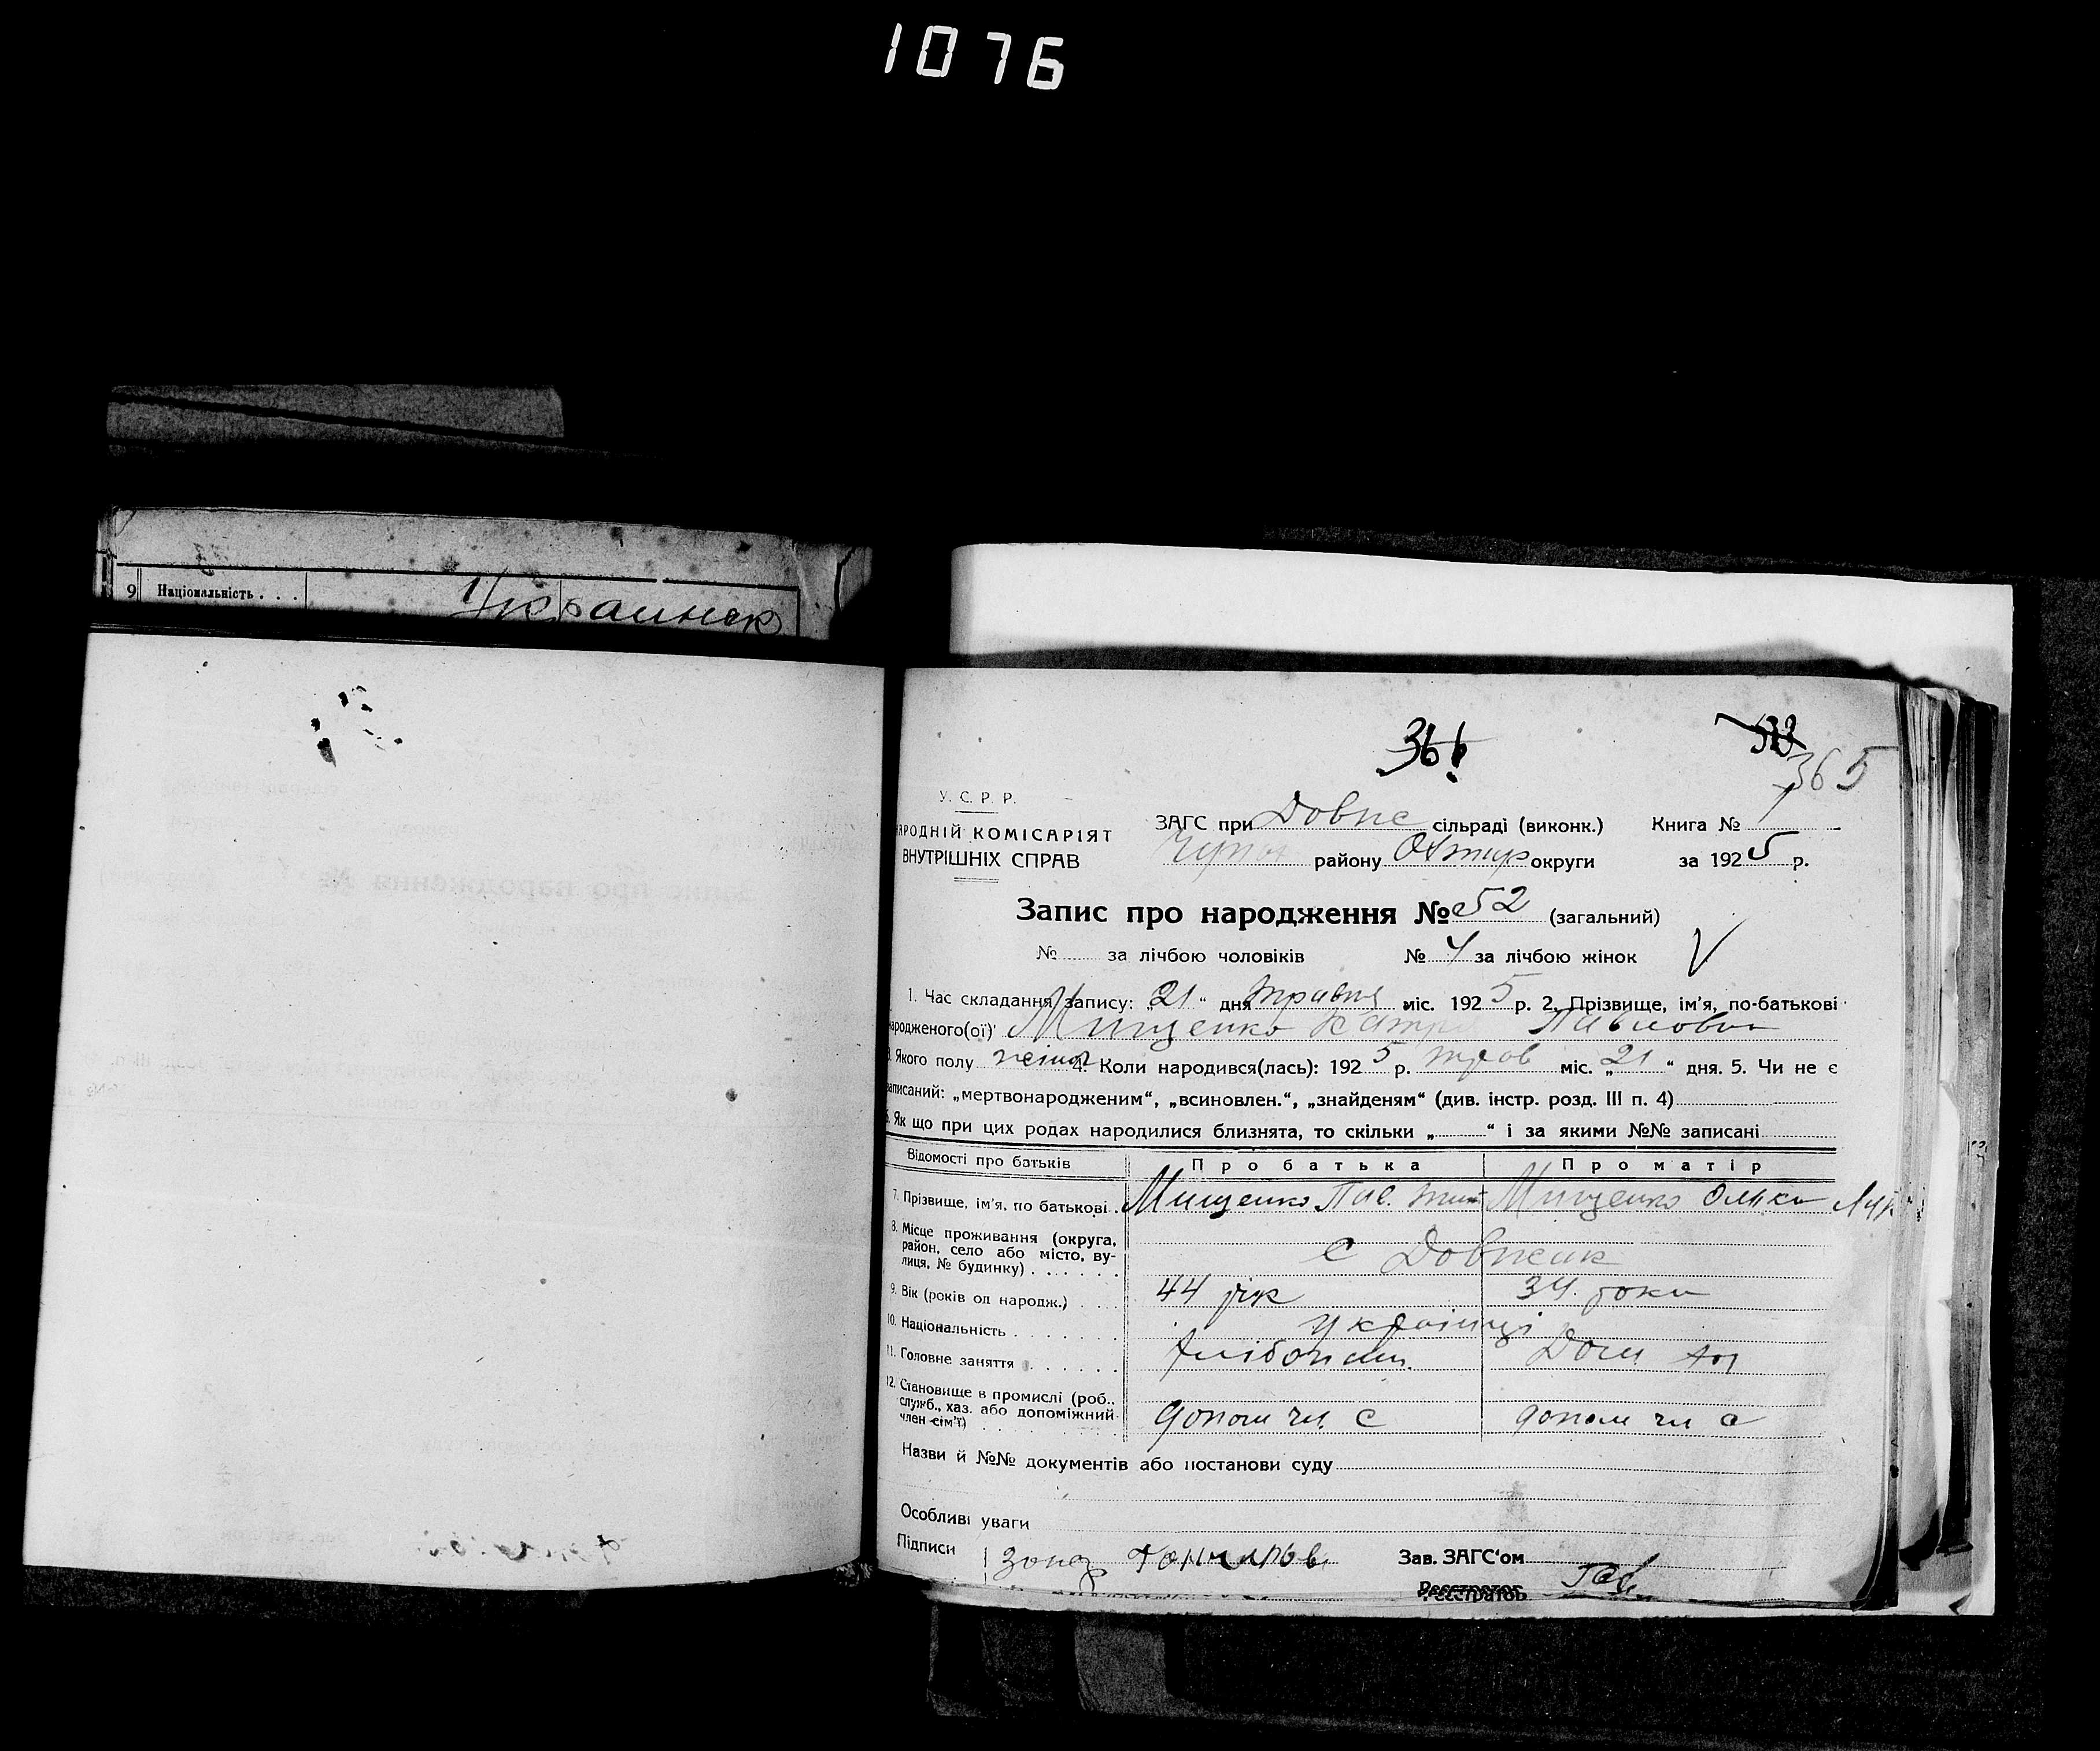 1076
9 Національність . . .
Украинск
366
533
365
У. С. Р. Р.
НАРОДНІЙ КОМІСАРІЯТ
ВНУТРІШНІХ СПРАВ
ЗАГС при Довже сільраді (виконк.) Книга № 1
району Охтир округи за 1925 р.
Запис про народження № 52 (загальний)
№ за лічбою чоловіків № 4 за лічбою жінок
1. Час складання запису: „21“ дня травня міс. 1925 р. 2. Прізвище, ім'я, по-батькові
народженого(ої) Мищенко Катр Павловна
3. Якого полу жіноч 4. Коли народився(лась): 1925 р. трав міс. „21“ дня. 5. Чи не є
записаний: „мертвонародженим“, „всиновлен.“, „знайденям“ (див. інстр. розд. III п. 4)
6. Як що при цих родах народилися близнята, то скільки „ “ і за якими №№ записані
Відомості про батьків Про батька Про матір
7. Прізвище, ім'я, по батькові . Мищенко Пав. Мищенко
8. Місце проживання (округа, район, село або місто, ву-
лиця, № будинку) . . . . . . с Довжик
9. Вік (років од народж.) . . . 44 рік 34 роки
10. Національність . . . . . . . українці
11. Головне заняття . . . . . . хлібопаш. Дом
12. Становище в промислі (роб.,
служб., хаз. або допоміжний
член сім'ї) . . . . . . . . допом чл с допом чл с
Назви й №№ документів або постанови суду
Особливі уваги
Підписи Гончарова Зав. ЗАГС'ом
Реєстратор